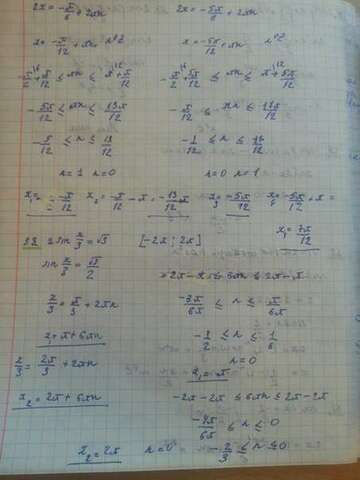 2x = -π/6 + 2πn    2x = -5π/6 + 2πn
x = -π/12 + πn    n∈Z    x = -5π/12 + πn    n∈Z
-π/2 + π/12 ≤ πn ≤ π + π/12    -π/2 + 5π/12 ≤ πn ≤ π + 5π/12
-5π/12 ≤ πn ≤ 13π/12    -π/12 ≤ πn ≤ 17π/12
-5/12 ≤ n ≤ 13/12    -1/12 ≤ n ≤
n = 1  n = 0    n = 0  n = 1
x₁ = -π/12    x₂ = -π/12 - π = -13π/12    x₃ = -5π/12    x₄ = -5π/12 + π =
x₁ = 7π/12
2 sin x/3 = √3    [-2π; 2π]
sin x/3 = √3/2    -2π - π ≤ 6πn ≤ 2π - π
x/3 = π/3 + 2πn    -3π/6π ≤ n ≤ π/6π
x₁ = π + 6πn    -1/2 ≤ n ≤ 1/6
x/3 = 2π/3 + 2πn    n = 0
x₁ = π
x₂ = 2π + 6πn    -2π - 2π ≤ 6πn ≤ 2π - 2π
-4π/6π ≤ n ≤ 0
x₂ = 2π    n = 0    -2/3 ≤ n ≤ 0